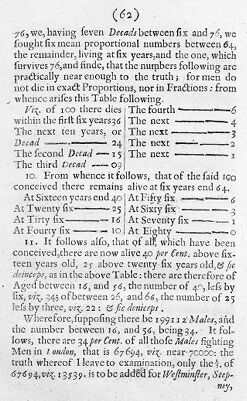 (62)
76, we, having seven Decads between six and 76, we
sought six mean proportional numbers between 64,
the remainder, living at six years, and the one, which
survives 76, and finde, that the numbers following are
practically near enough to the truth; for men do
not die in exact Proportions, nor in Fractions: from
whence arises this Table following.
Viz. of 100 there dies
within the first six years 36
The next ten years, or
Decad —— 24
The second Decad — 15
The third Decad — 09
The fourth —— 6
The next —— 4
The next —— 3
The next —— 2
The next —— 1
10. From whence it follows, that of the said 100
conceived there remains alive at six years end 64.
At Sixteen years end 40
At Twenty six —— 25
At Tirty six —— 16
At Fourty six —— 10
At Fifty six —— 6
At Sixty six —— 3
At Seventy six —— 1
At Eighty —— 0
11. It follows also, that of all, which have been
conceived, there are now alive 40 per Cent. above six-
teen years old, 25 above twenty six years old, & sic
deinceps, as in the above Table: there are therefore of
Aged between 16, and 56, the number of 40, less by
six, viz. 34; of between 26, and 66, the number of 25
less by three, viz. 22: & sic deniceps.
Wherefore, supposing there be 199112 Males, and
the number between 16, and 56, being 34. It fol-
lows, there are 34 per Cent. of all those Males fighting
Men in London, that is 67694, viz. near 70000: the
truth whereof I leave to examination, only the ⅕. of
67694, viz. 13539. is to be added for Westminster, Step-
ney,